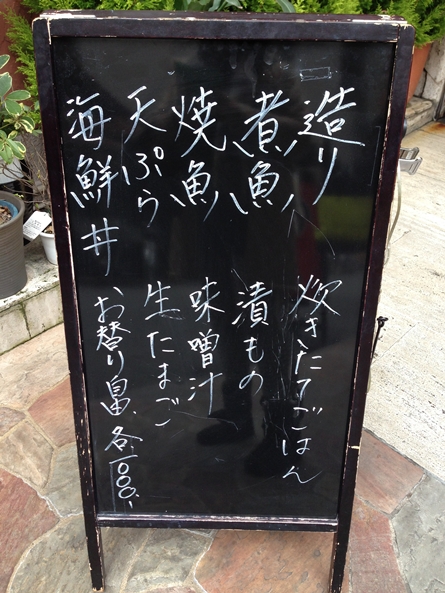 造り
煮魚
焼魚
天ぷら
海鮮丼
炊きたてごはん
漬もの
味噌汁
生たまご
お替り
各1000.-